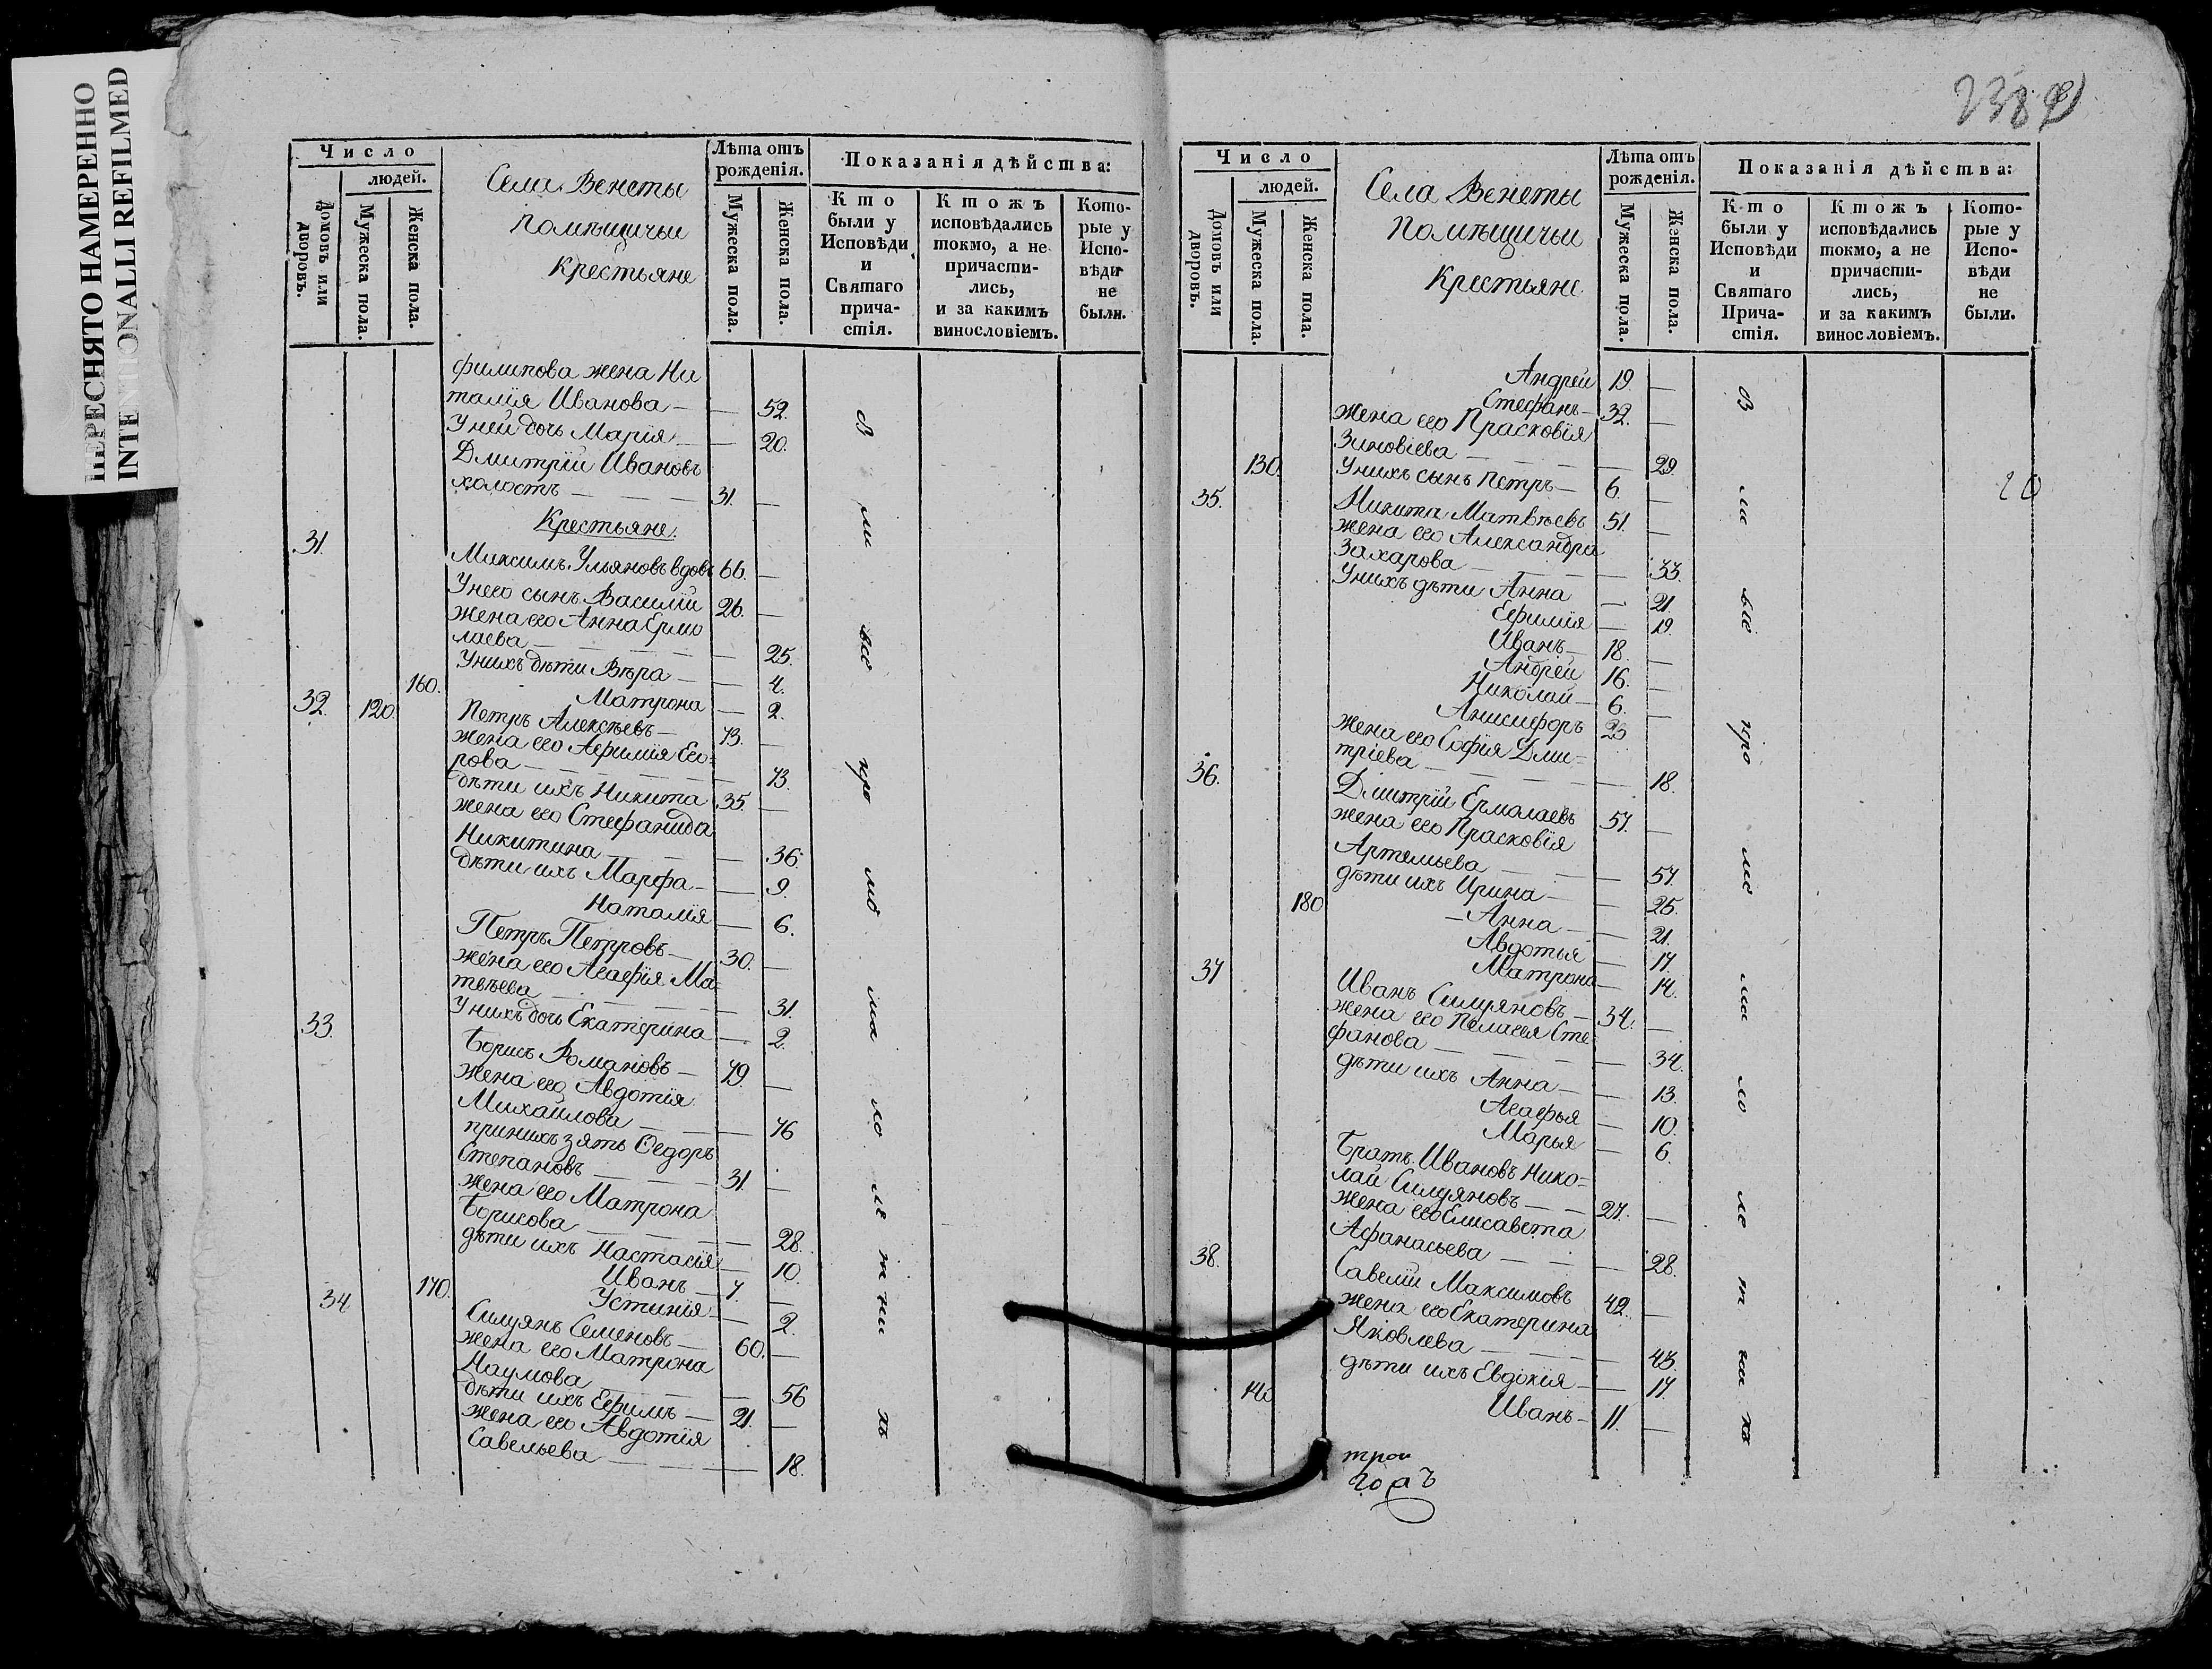 ПЕРЕСНЯТО НАМЕРЕННО
INTENTIONALLI REFILMED
Число
людей.
Домовъ или дворовъ.
Мужеска пола.
Женска пола.
Села Венеты
помѣщичьи
крестьяне
Лѣта отъ рожденія.
Мужеска пола.
Женска пола.
Показанія дѣйства:
Кто были у Исповѣди и Святаго причастія.
Ктожъ исповѣдались токмо, а не причастились, и за какимъ винословіемъ.
Которые у Исповѣди не были.
филипова жена На
талія Иванова — — 52.
У ней дочь Марія — — 20.
Дмитрій Ивановъ
холостъ — — — 31. —
Крестьяне.
31.
Максимъ Ульяновъ вдовъ 66. —
У него сынъ Василій 26. —
жена его Анна Ермо
лаева — — — 25.
У нихъ дѣти Вѣра — — 4.
160. Матрона — 2.
32. 120. Петръ Алексѣевъ — 73. —
жена его Афимія Его=
рова — — — 73.
дѣти ихъ Никита 35. —
жена его Стефанида
Никитина — — — 36.
дѣти ихъ Марфа — — 9.
Наталія — 6.
Петръ Петровъ — 30. —
жена его Агафія Ма=
твѣева — — — 31.
У нихъ дочь Екатерина — 2.
33. Борисъ Романовъ — 79. —
жена его Авдотія
Михайлова — — — 76
при нихъ зять Ѳедоръ
Степановъ — — 31. —
жена его Матрона
Борисова — — — 28.
дѣти ихъ Настасія — 10.
Иванъ — 7. —
170. Устинія — — 2.
34 Силуянъ Семеновъ — 60. —
жена его Матрона
Наумова — — — 56
дѣти ихъ Ефимъ — 21. —
жена его Авдотія
Савельева — — — 18.
238
Число
людей.
Домовъ или дворовъ.
Мужеска пола.
Женска пола.
Села Венеты
Помѣщичьи
Крестьяне
Лѣта отъ рожденія.
Мужеска пола.
Женска пола.
Показанія дѣйства:
Кто были у Исповѣди и Святаго Причастія.
Ктожъ исповѣдались токмо, а не причастились, и за какимъ винословіемъ.
Которые у Исповѣди не были.
Андрей 19. —
Стефанъ — 32. —
жена его Прасковія
Зиновіева — — — 29.
130. У нихъ сынъ Петръ — 6. —
35. Никита Матвѣевъ 51. —
жена его Александра
Захарова — — — 33.
У нихъ дѣти Анна — 21.
Ефимія — 19.
Иванъ — 18. —
Андрей 16. —
Николай — 6. —
Анисифоръ 23
жена его Софія Дми=
тріева — — — 18.
36. Дмитрій Ермалаевъ 57. —
жена его Прасковія
Артемьева — — — 57.
дѣти ихъ Ирина — — 25.
180 — Анна — — 21.
Авдотья — 17.
Матрона — 14.
37 Иванъ Силуяновъ — 34. —
жена его Пелагея Сте
фанова — — — 34.
дѣти ихъ Анна — — 13.
Агафья — 10.
Марья — 6.
Братъ Ивановъ Нико=
лай Силуяновъ — — 27. —
жена его Елисавета
Афанасьева — — — 28.
38. Савелій Максимовъ 42. —
жена его Екатерина
Яковлева — — — 43.
дѣти ихъ Евдокія — — 17.
140 Иванъ — 11. —